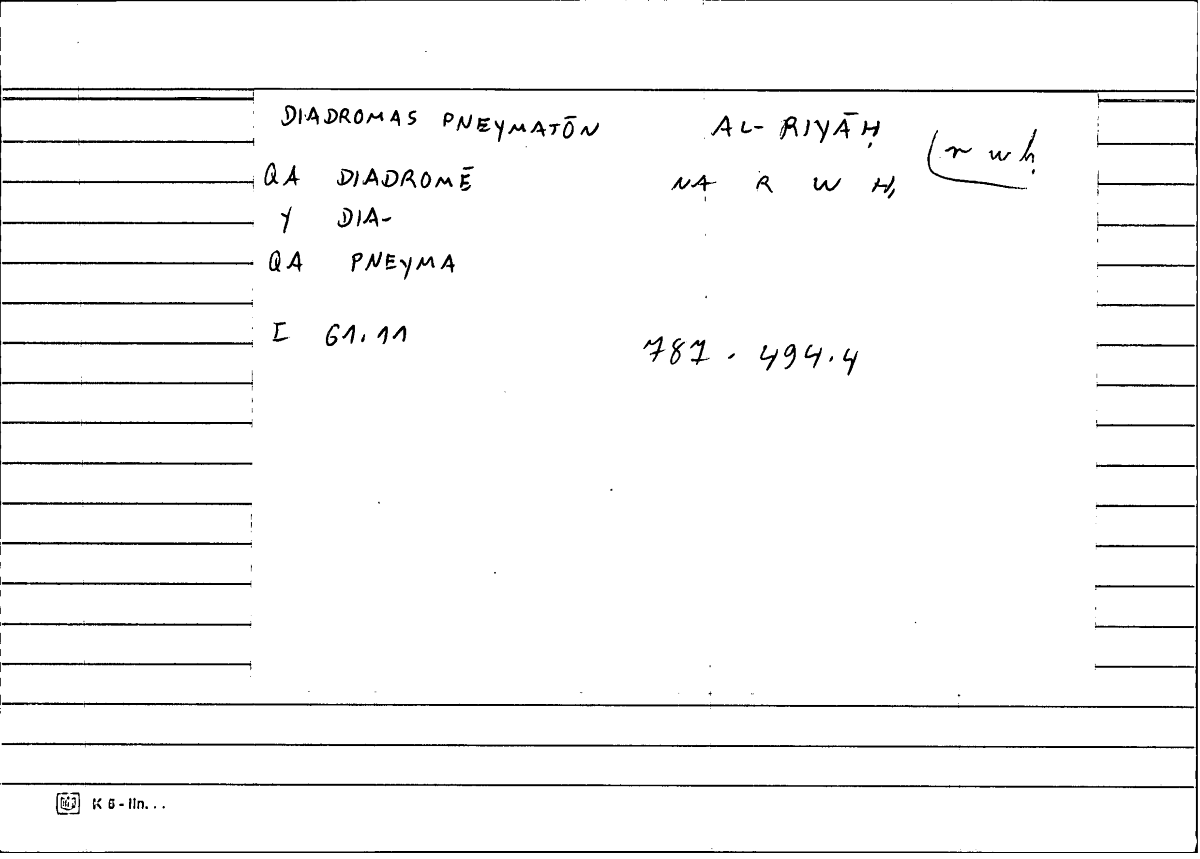 DIADROMAS PNEYMATŌN AL-RIYĀḤ (r w ḥ
QA DIADROMĒ NA R W Ḥ
Y DIA-
QA PNEYMA
I 61.11 787.494.4
K 6 - lin...